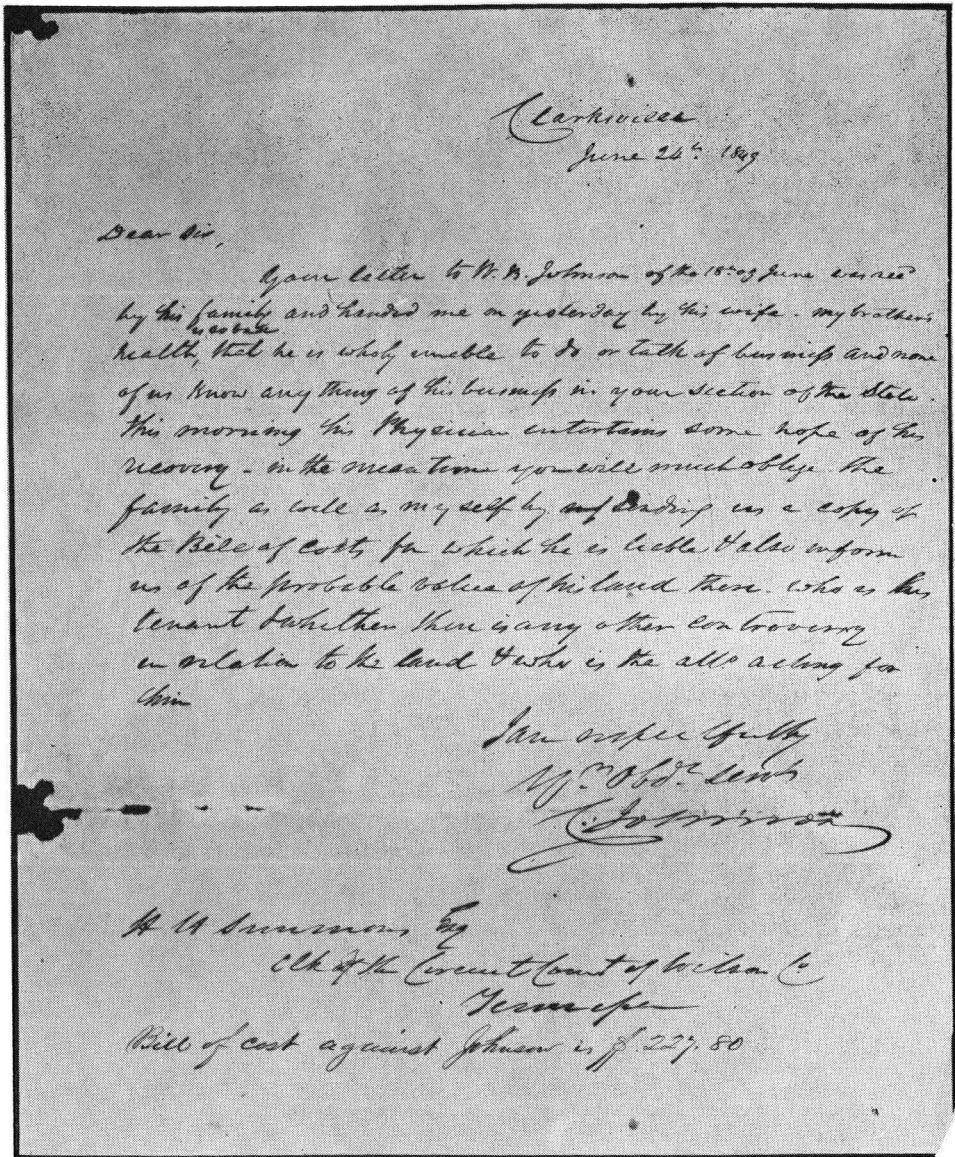 Clarksville
June 24th 1849
Dear Sir,
Your letter to W. B. Johnson of the 18th of June was recd
by his family and handed me on yesterday by his wife. my brothers
is so bad
health, that he is wholy unable to do or talk of business and none
of us know any thing of his business in your section of the State.
this morning his Physician entertains some hope of his
recovery - in the mean time you will much oblige the
family as well as my self by sending us a copy of
the Bill of Costs for which he is liable & also inform
us of the probable value of his land there. who is his
tenant & whether there is any other controversy
in relation to the land & who is the atto acting for
him
I am respectfully
Yr. Obdt Servt
C. Johnson
H Simmons Esq
Clk of the Circuit Court of Wilson Co
Tennessee
Bill of cost against Johnson is $227.80